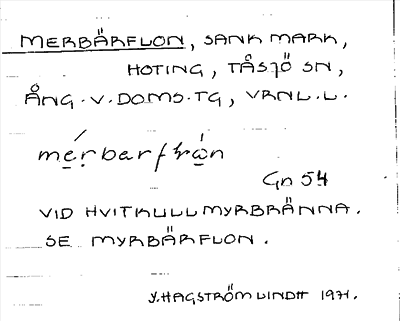 MERBÄRFLON, SANK MARK,
HOTING, TÅSJÖ SN,
ÅNG. V. DOMS. TG, VRNL. L.
mérbarfrån
Gn 54
VID HVITKULLMYRBRÄNNA.
SE MYRBÄRFLON.
Y. HAGSTRÖM LINDH 1971.